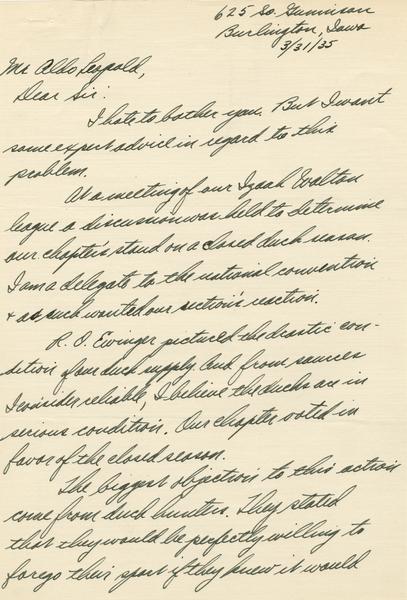 625 So. Gunnison
Burlington, Iowa
3/31/35
Mr. Aldo Leopold,
Dear Sir:
I hate to bother you. But I want
some expert advice in regard to this
problem.
At a meeting of our Izaak Walton
league a discussion was held to determine
our chapter's stand on a closed duck season.
I am a delegate to the national convention
& as such wanted our section's reaction.
R. O. Ewinger pictured the drastic con-
dition of our duck supply. And from sources
I consider reliable, I believe the ducks are in
serious condition. Our chapter voted in
favor of the closed season.
The biggest objection to this action
come from duck hunters. They stated
that they would be perfectly willing to
forego their sport if they knew it would